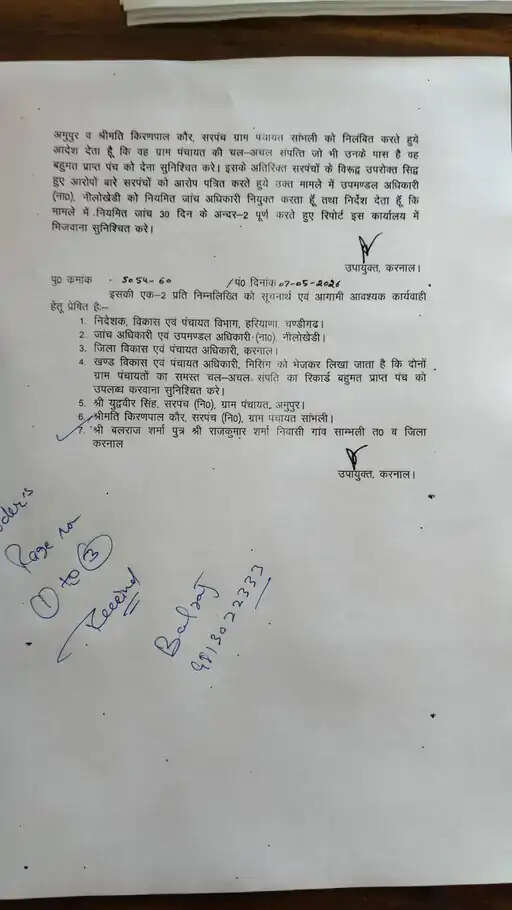 अमुपुर व श्रीमति किरणपाल कौर, सरपंच ग्राम पंचायत सांभली को निलंबित करते हुये
आदेश देता हूँ कि वह ग्राम पंचायत की चल–अचल संपत्ति जो भी उनके पास है वह
बहुमत प्राप्त पंच को देना सुनिश्चित करे। इसके अतिरिक्त सरपंचों के विरूद्व उपरोक्त सिद्व
हुए आरोपों बारे सरपंचों को आरोप पत्रित करते हुये उक्त मामले में उपमण्डल अधिकारी
(ना0), नीलोखेडी को नियमित जांच अधिकारी नियुक्त करता हूँ तथा निर्देश देता हूँ कि
मामले में नियमित जांच 30 दिन के अन्दर–2 पूर्ण करते हुए रिपोर्ट इस कार्यालय में
भिजवाना सुनिश्चित करे।
उपायुक्त, करनाल।
पृ0 कमांक 5054-60 /पं0 दिनांक 07-05-2026
इसकी एक–2 प्रति निम्नलिखित को सूचनार्थ एवं आगामी आवश्यक कार्यवाही
हेतू प्रेषित है:–
1. निदेशक, विकास एवं पंचायत विभाग, हरियाणा, चण्डीगढ।
2. जांच अधिकारी एवं उपमण्डल अधिकारी (ना0), नीलोखेडी।
3. जिला विकास एवं पंचायत अधिकारी, करनाल।
4. खण्ड विकास एवं पंचायत अधिकारी, निसिंग को भेजकर लिखा जाता है कि दोनों
ग्राम पंचायतों का समस्त चल–अचल संपति का रिकार्ड बहुमत प्राप्त पंच को
उपलब्ध करवाना सुनिश्चित करे।
5. श्री युद्ववीर सिंह, सरपंच (नि0), ग्राम पंचायत, अमुपुर।
6. श्रीमति किरणपाल कौर, सरपंच (नि0), ग्राम पंचायत सांभली।
7. श्री बलराज शर्मा पुत्र श्री राजकुमार शर्मा निवासी गांव साम्भली त0 व जिला
करनाल
उपायुक्त, करनाल।
Page no
1 to 3
Received
Balraj
9813022333